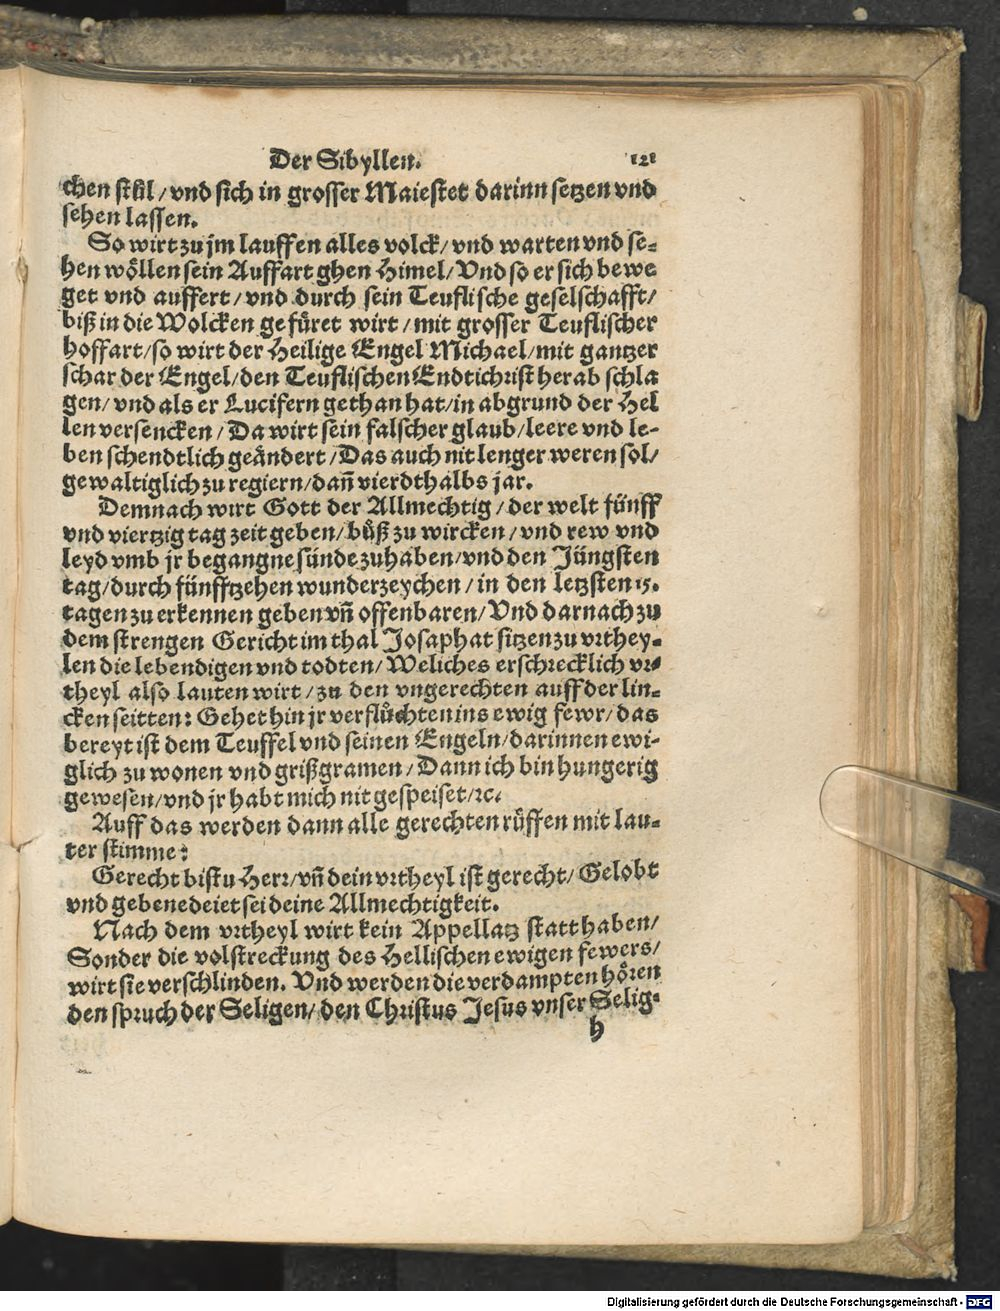 Der Sibyllen. 121
chen stůl / vnd sich in grosser Maiestet darinn setzen vnd
sehen lassen.
So wirt zu jm lauffen alles volck / vnd warten vnd se-
hen wöllen sein Auffart ghen Himel / Vnd so er sich bewe
get vnd auffert / vnd durch sein Teuflische geselschafft /
biß in die Wolcken gefüret wirt / mit grosser Teuflischer
hoffart / so wirt der Heilige Engel Michael / mit gantzer
schar der Engel / den Teuflischen Endtichrist herab schla
gen / vnd als er Lucifern gethan hat / in abgrund der Hel
len versencken / Da wirt sein falscher glaub / leere vnd le-
ben schendtlich geändert / Das auch nit lenger weren sol /
gewaltiglich zu regiern / dañ vierdthalbs jar.
Demnach wirt Gott der Allmechtig / der welt fünff
vnd viertzig tag zeit geben / bůß zu wircken / vnd rew vnd
leyd vmb jr begangne sünde zuhaben / vnd den Jüngsten
tag / durch fünfftzehen wunderzeychen / in den letzsten 15.
tagen zu erkennen geben vñ offenbaren / Vnd darnach zu
dem strengen Gericht im thal Josaphat sitzen zu vrthey-
len die lebendigen vnd todten / Weliches erschrecklich vr-
theyl also lauten wirt / zu den vngerechten auff der lin-
cken seitten: Gehet hin jr verflůchten ins ewig fewr / das
bereyt ist dem Teuffel vnd seinen Engeln / darinnen ewi-
glich zu wonen vnd grißgramen / Dann ich bin hungerig
gewesen / vnd jr habt mich nit gespeiset / ꝛc.
Auff das werden dann alle gerechten rüffen mit lau-
ter stimme:
Gerecht bistu Herr / vñ dein vrtheyl ist gerecht / Gelobt
vnd gebenedeiet sei deine Allmechtigkeit.
Nach dem vrtheyl wirt kein Appellatz statt haben /
Sonder die volstreckung des Hellischen ewigen fewers /
wirt sie verschlinden. Vnd werden die verdampten hören
den spruch der Seligen / den Christus Jesus vnser Selig-
h
Digitalisierung gefördert durch die Deutsche Forschungsgemeinschaft - DFG